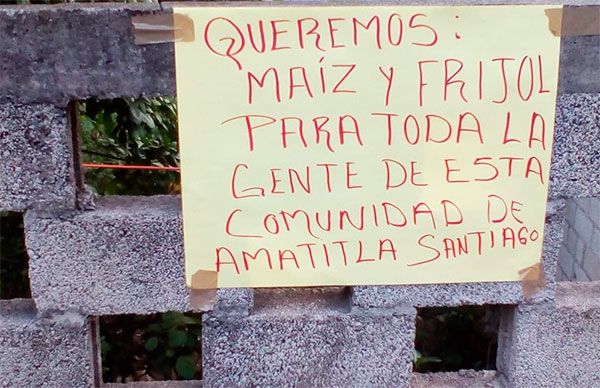 QUEREMOS:
MAÍZ Y FRIJOL
PARA TODA LA
GENTE DE ESTA
COMUNIDAD DE
AMATITLA SANTIAGO